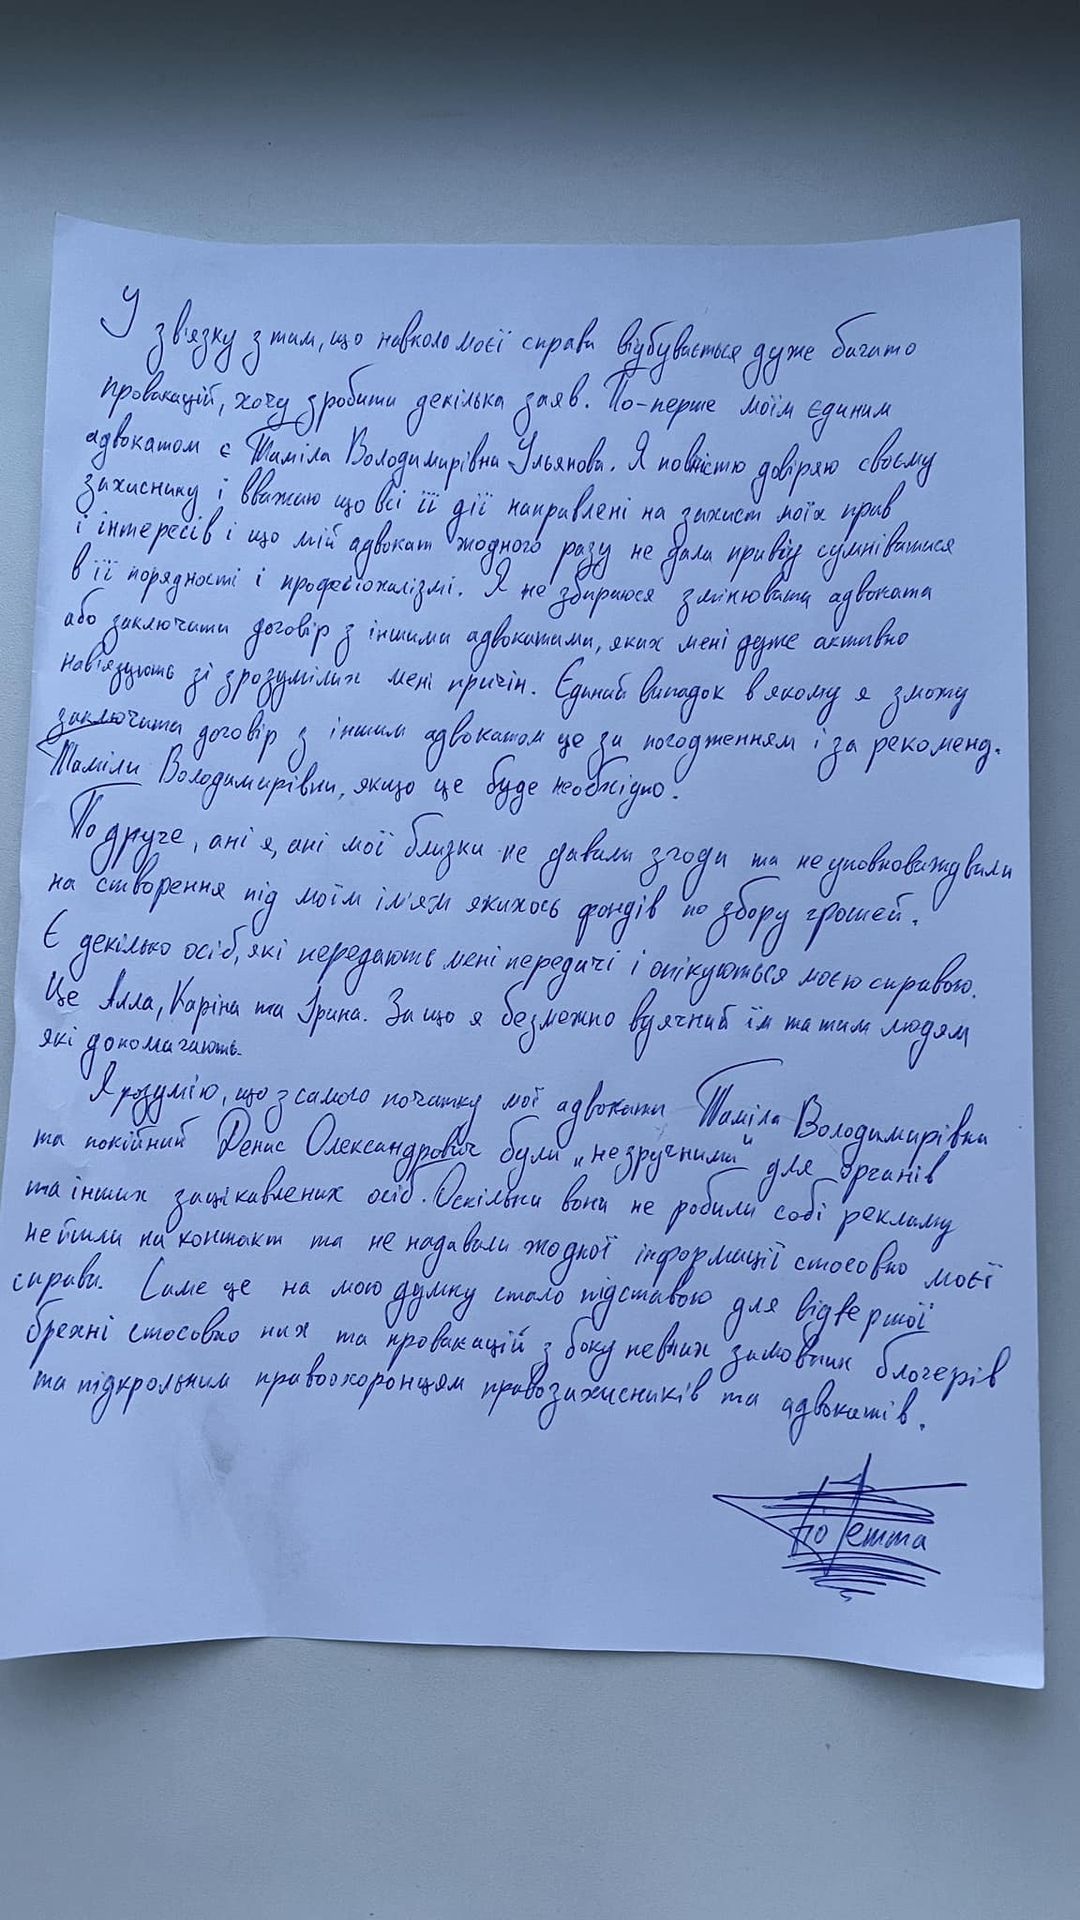 У зв'язку з тим, що навколо моєї справи відбувається дуже багато
провакацій, хочу зробити декілька заяв. По-перше моїм єдиним
адвокатом є Таміла Володимирівна Ульянова. Я повністю довіряю своєму
захиснику і вважаю що всі її дії направлені на захист моїх прав
і інтересів і що мій адвокат жодного разу не дала привід сумніватися
в її порядності і професіоналізмі. Я не збираюся змінювати адвоката
або заключати договір з іншими адвокатами, яких мені дуже активно
нав'язують зі зрозумілих мені причін. Єдиний випадок в якому я зможу
заключити договір з іншим адвокатом це за погодженням і за рекоменд.
Таміли Володимирівни, якщо це буде необхідно.
По друге, ані я, ані мої близки не давали згоди та не уповноваждвили
на створення під моїм ім'ям якихось фондів по збору грошей.
Є декілько осіб, які передають мені передачі і опікуються моєю справою.
Це Алла, Каріна та Ірина. За що я безмежно вдячний їм та тим людям
які допомагають.
Я розумію, що з самого початку мої адвокати Таміла Володимирівна
та покійний Денис Олександрович були „незручними" для органів
та інших зацікавлених осіб. Оскільки вони не робили собі рекламу
не йшли на контакт та не надавали жодної інформації стосовно моєї
справи. Саме це на мою думку стало підставою для відвертої
брехні стосовно них та провакацій з боку певних замовних блогерів
та підкрольним правоохоронцям правозахисників та адвокатів.